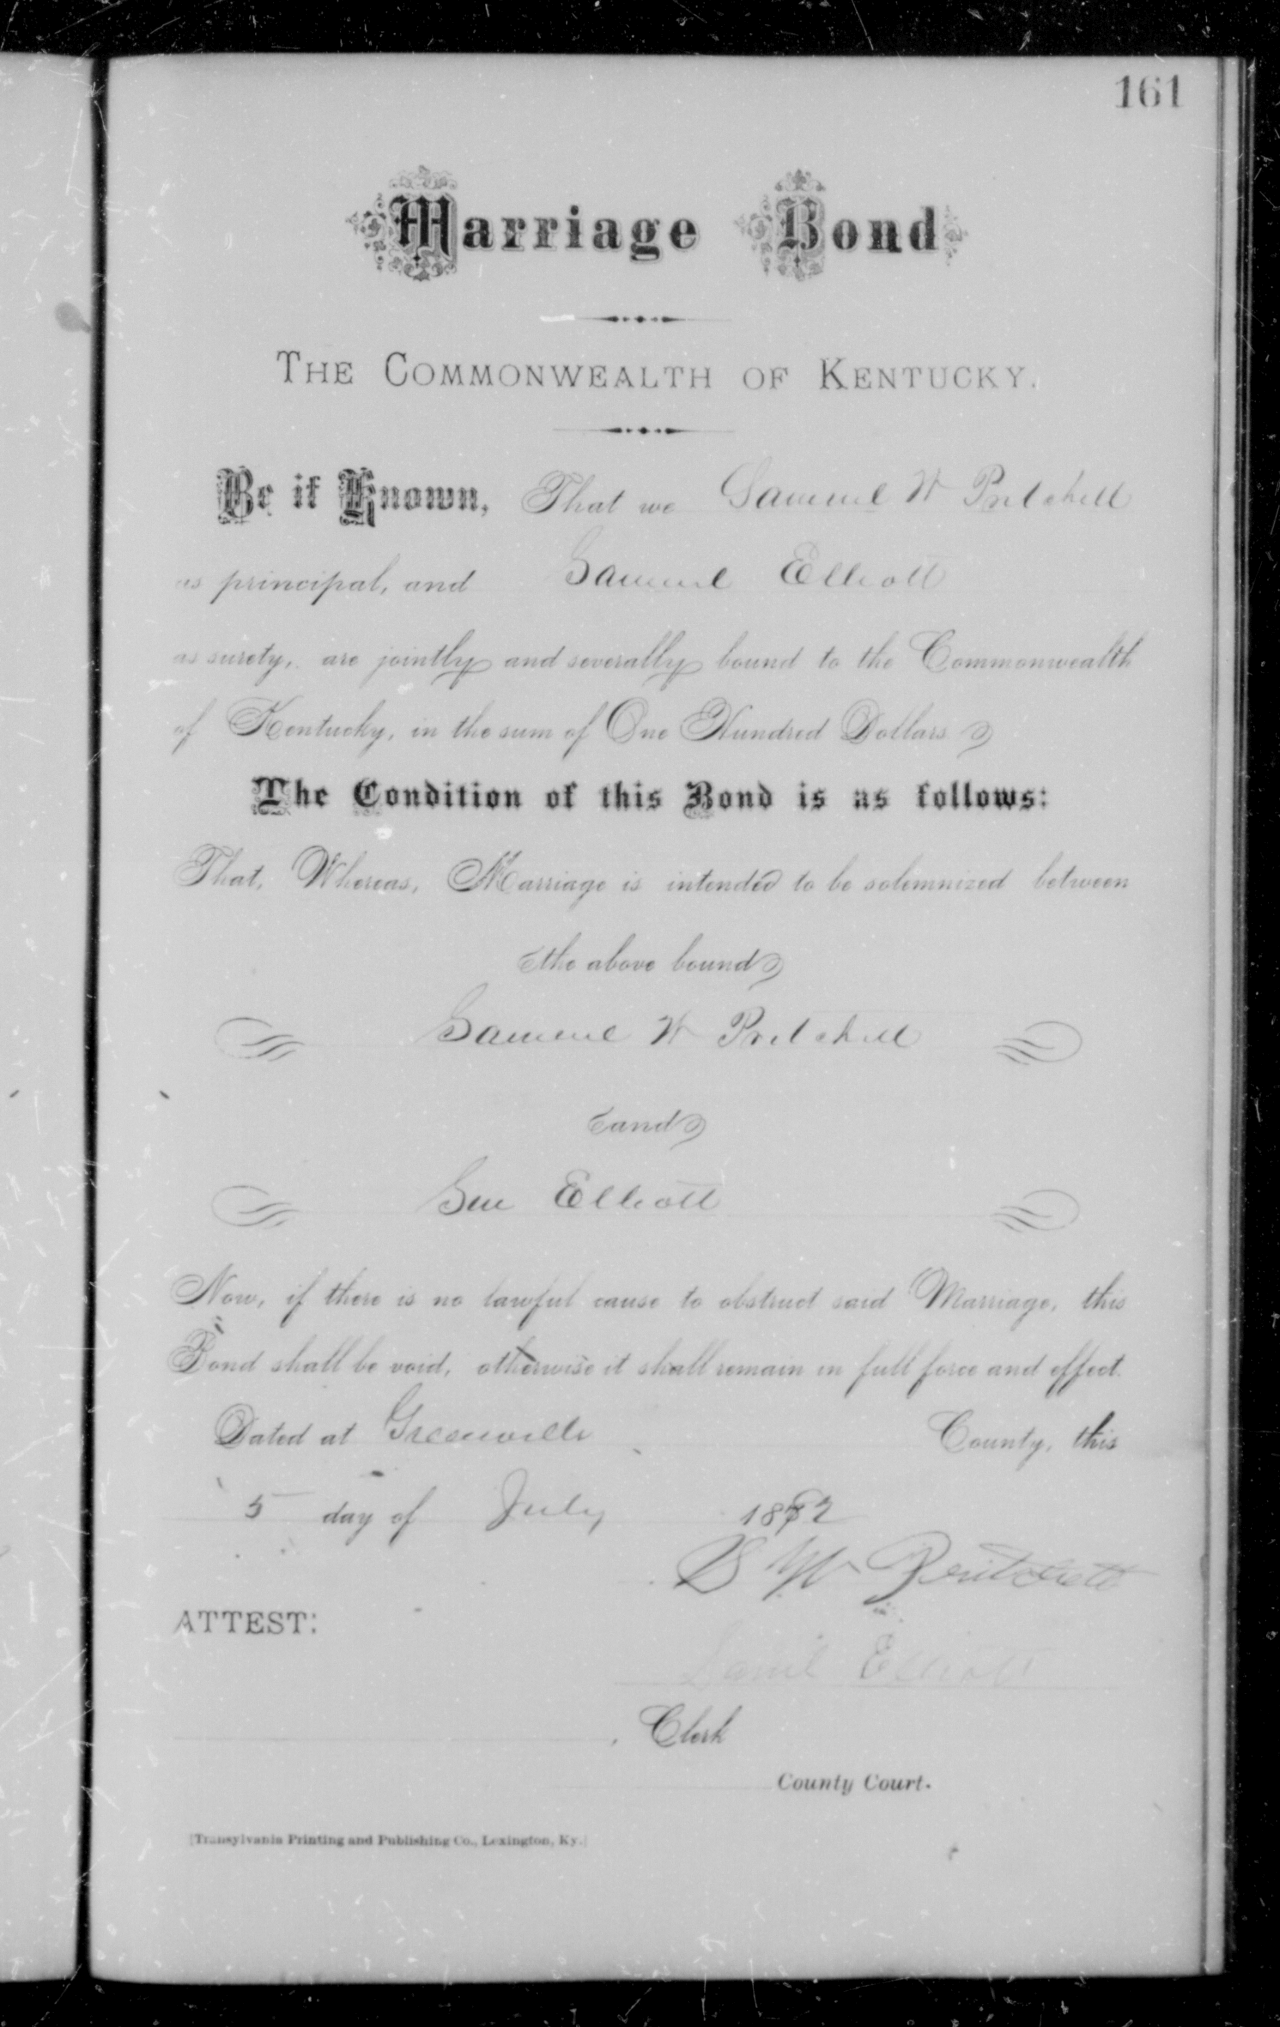 161
Marriage Bond
THE COMMONWEALTH OF KENTUCKY.
Be it Known, That we Samuel W Pritchett
as principal, and Samuel Elliott
as surety, are jointly and severally bound to the Commonwealth
of Kentucky, in the sum of One Hundred Dollars
The Condition of this Bond is as follows:
That, Whereas, Marriage is intended to be solemnized between
the above bound
Samuel W Pritchett
and
Sue Elliott
Now, if there is no lawful cause to obstruct said Marriage, this
Bond shall be void, otherwise it shall remain in full force and effect.
Dated at Greenville County, this
5 day of July 1882
S W Pritchett
ATTEST:
Saml Elliott
, Clerk
County Court.
[Transylvania Printing and Publishing Co., Lexington, Ky.]